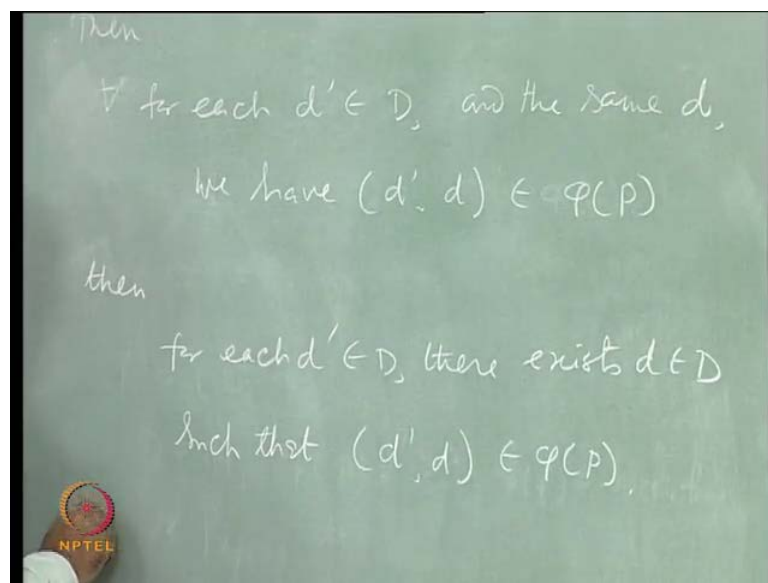 Then
∀ for each d' ∈ D, and the same d,
we have (d', d) ∈ φ(P)
then
for each d' ∈ D, there exists d ∈ D
such that (d', d) ∈ φ(P).
NPTEL